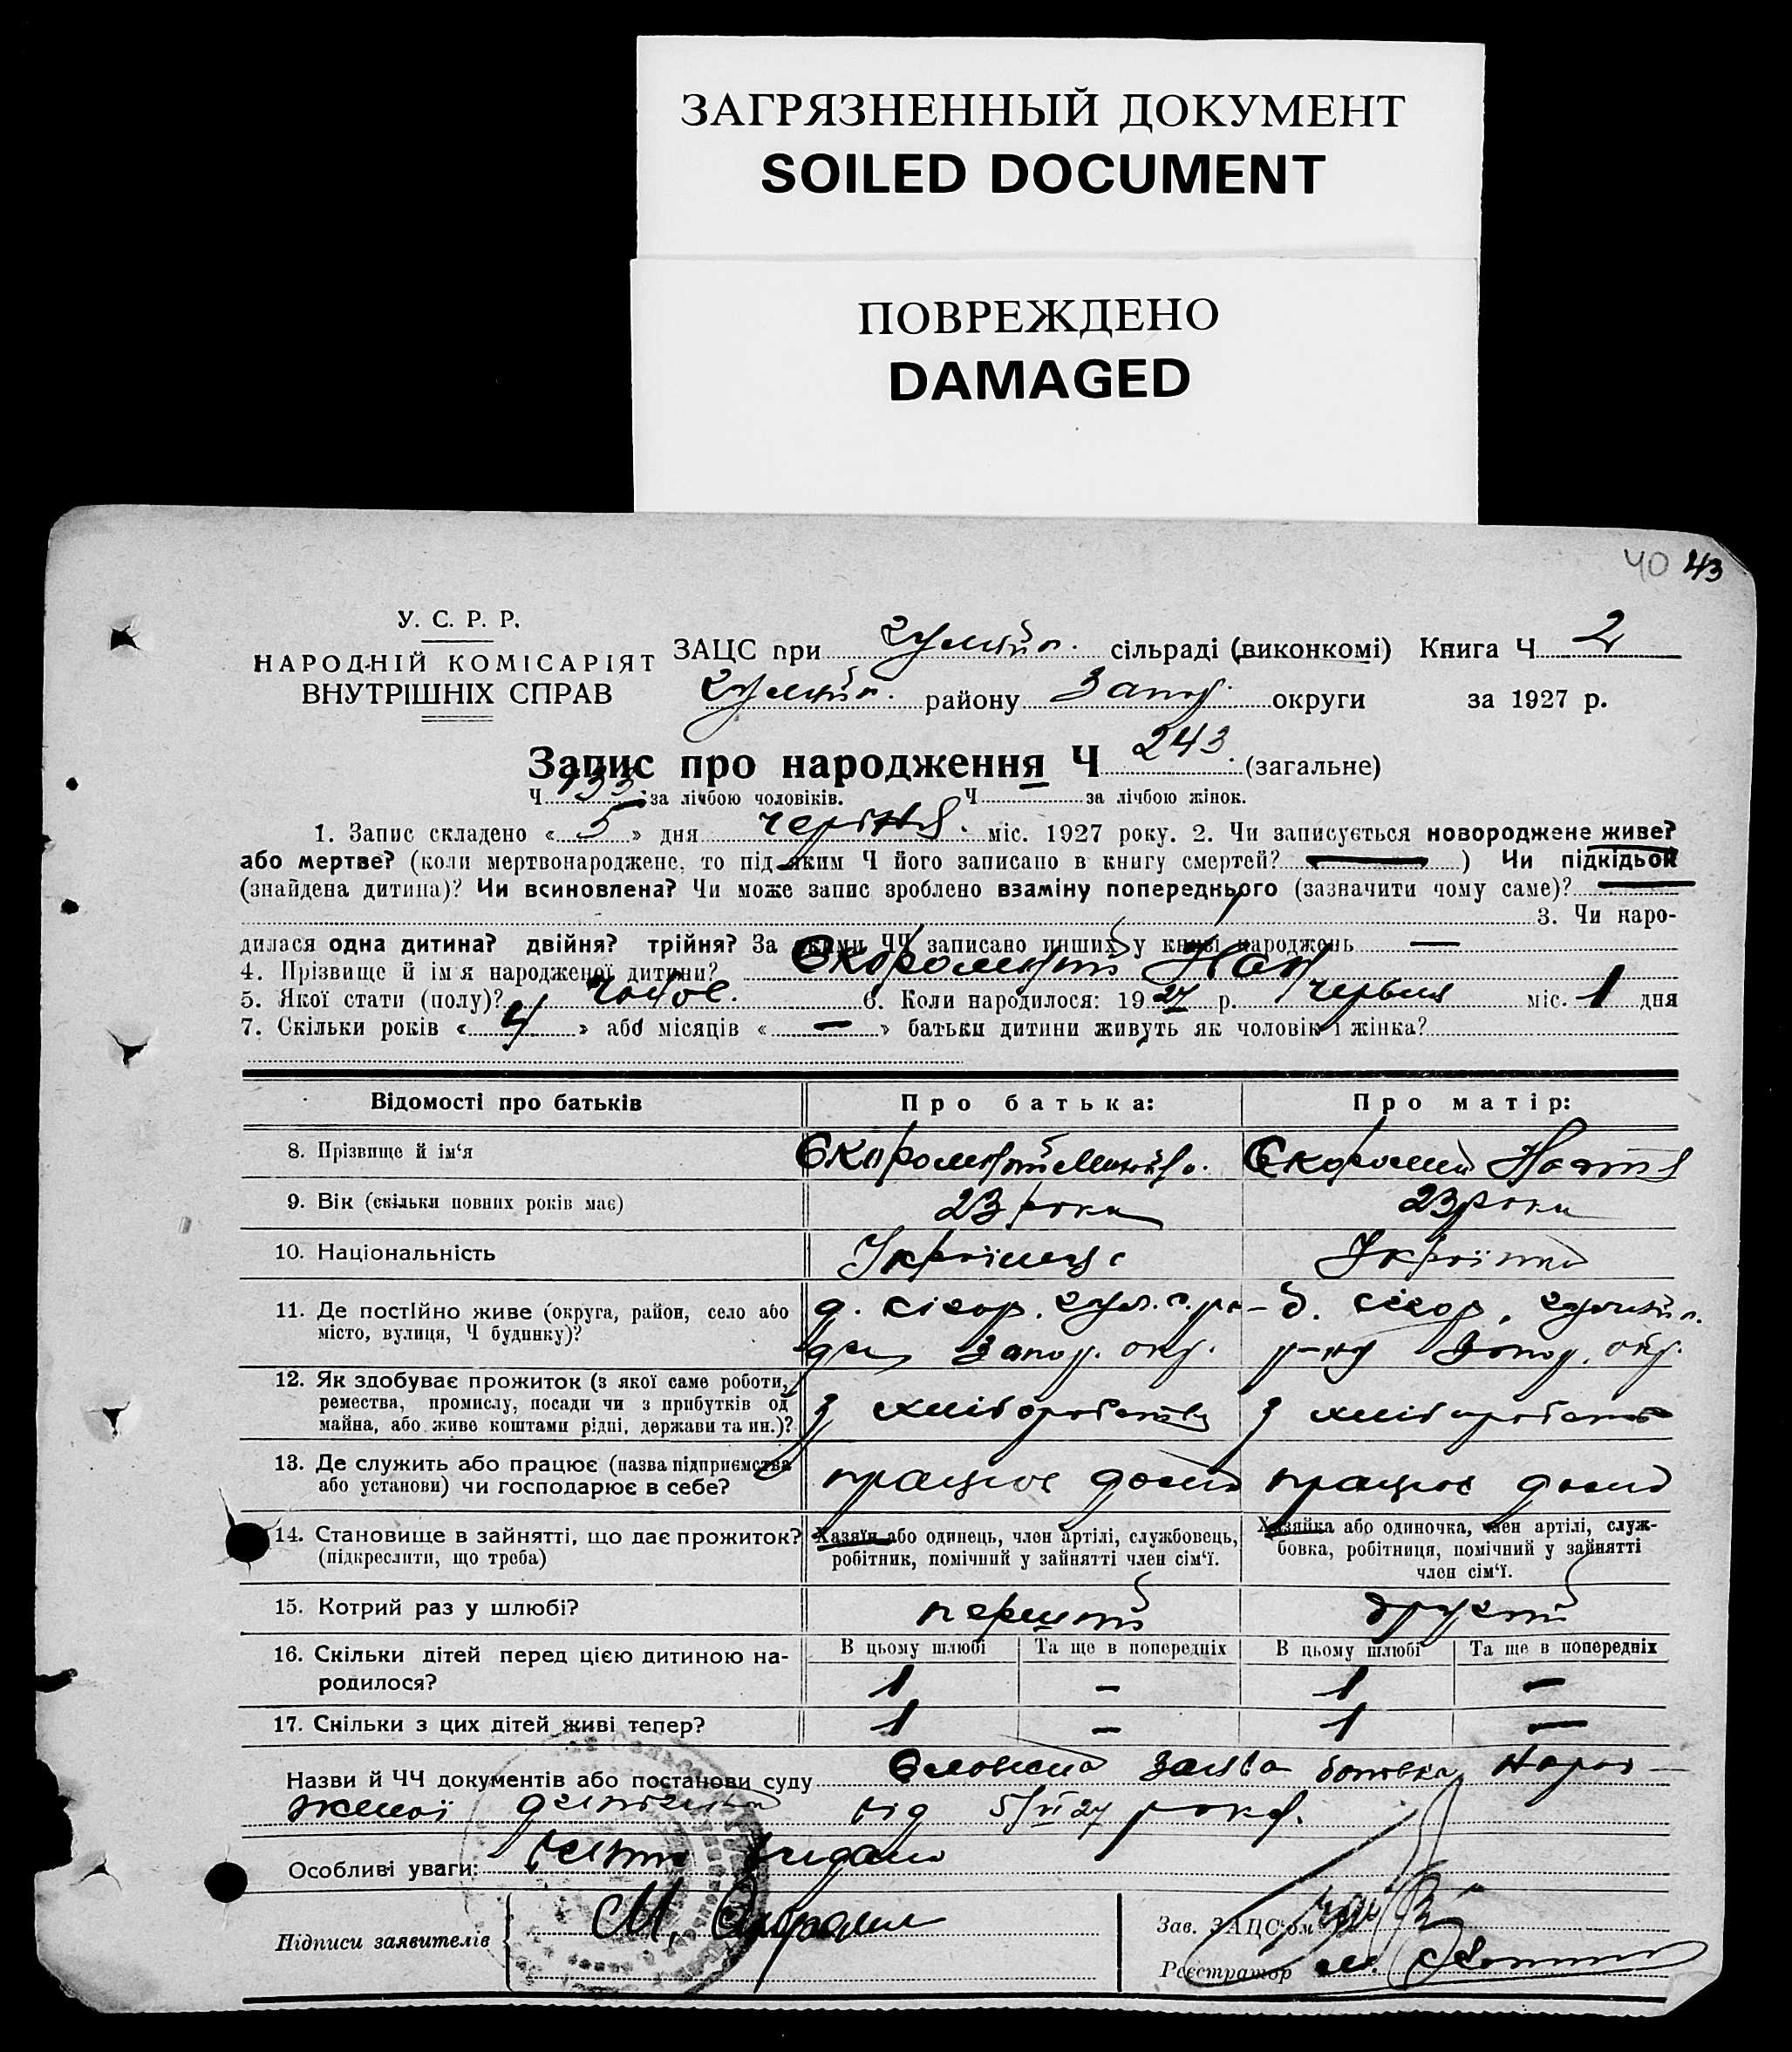 ЗАГРЯЗНЕННЫЙ ДОКУМЕНТ
SOILED DOCUMENT
ПОВРЕЖДЕНО
DAMAGED
40 43
У. С. Р. Р.
НАРОДНІЙ КОМІСАРІЯТ
ВНУТРІШНІХ СПРАВ
ЗАЦС при гуляйп. сільраді (виконкомі) Книга Ч 2
гуляйп. району Запор. округи за 1927 р.
Запис про народження Ч 243 (загальне)
Ч 133 за лічбою чоловіків. Ч за лічбою жінок.
1. Запис складено « 5 » дня червня міс. 1927 року. 2. Чи записується новороджене живе?
або мертве? (коли мертвонароджене, то під яким Ч його записано в книгу смертей? — ) Чи підкідьок
(знайдена дитина)? Чи всиновлена? Чи може запис зроблено взаміну попереднього (зазначити чому саме)? —
3. Чи наро-
дилася одна дитина? двійня? трійня? За якими ЧЧ записано инших у книзі народжень —
4. Прізвище й ім'я народженої дитини?
5. Якої статі (полу)? чолов. 6. Коли народилося: 1927 р. червня міс. 1 дня
7. Скільки років « 4 » або місяців « — » батьки дитини живуть як чоловік і жінка?
Відомості про батьків Про батька: Про матір:
8. Прізвище й ім'я
9. Вік (скільки повних років має) 23 роки 23 роки
10. Національність Українець Українка
11. Де постійно живе (округа, район, село або
місто, вулиця, Ч будинку)?
Запор. окр. Запор. окр.
12. Як здобуває прожиток (з якої саме роботи,
ремества, промислу, посади чи з прибутків од
майна, або живе коштами рідні, держави та ин.)?
з хліборобства з хліборобства
13. Де служить або працює (назва підприємства
або установи) чи господарює в себе?
працює дома працює дома
14. Становище в зайнятті, що дає прожиток?
(підкреслити, що треба)
Хазяїн або одинець, член артілі, службовець,
робітник, помічний у зайнятті член сім'ї.
Хазяйка або одиночка, член артілі, служ-
бовка, робітниця, помічний у зайнятті
член сім'ї.
15. Котрий раз у шлюбі? перший другий
16. Скільки дітей перед цією дитиною на-
родилося?
В цьому шлюбі Та ще в попередніх В цьому шлюбі Та ще в попередніх
1 — 1 —
17. Скільки з цих дітей живі тепер? 1 — 1 —
Назви й ЧЧ документів або постанови суду Словесна заява батька народ-
женої дитини від 5/VI 27 року.
Особливі уваги:
Підписи заявителів М.
Зав. ЗАЦС'ом
Реєстратор